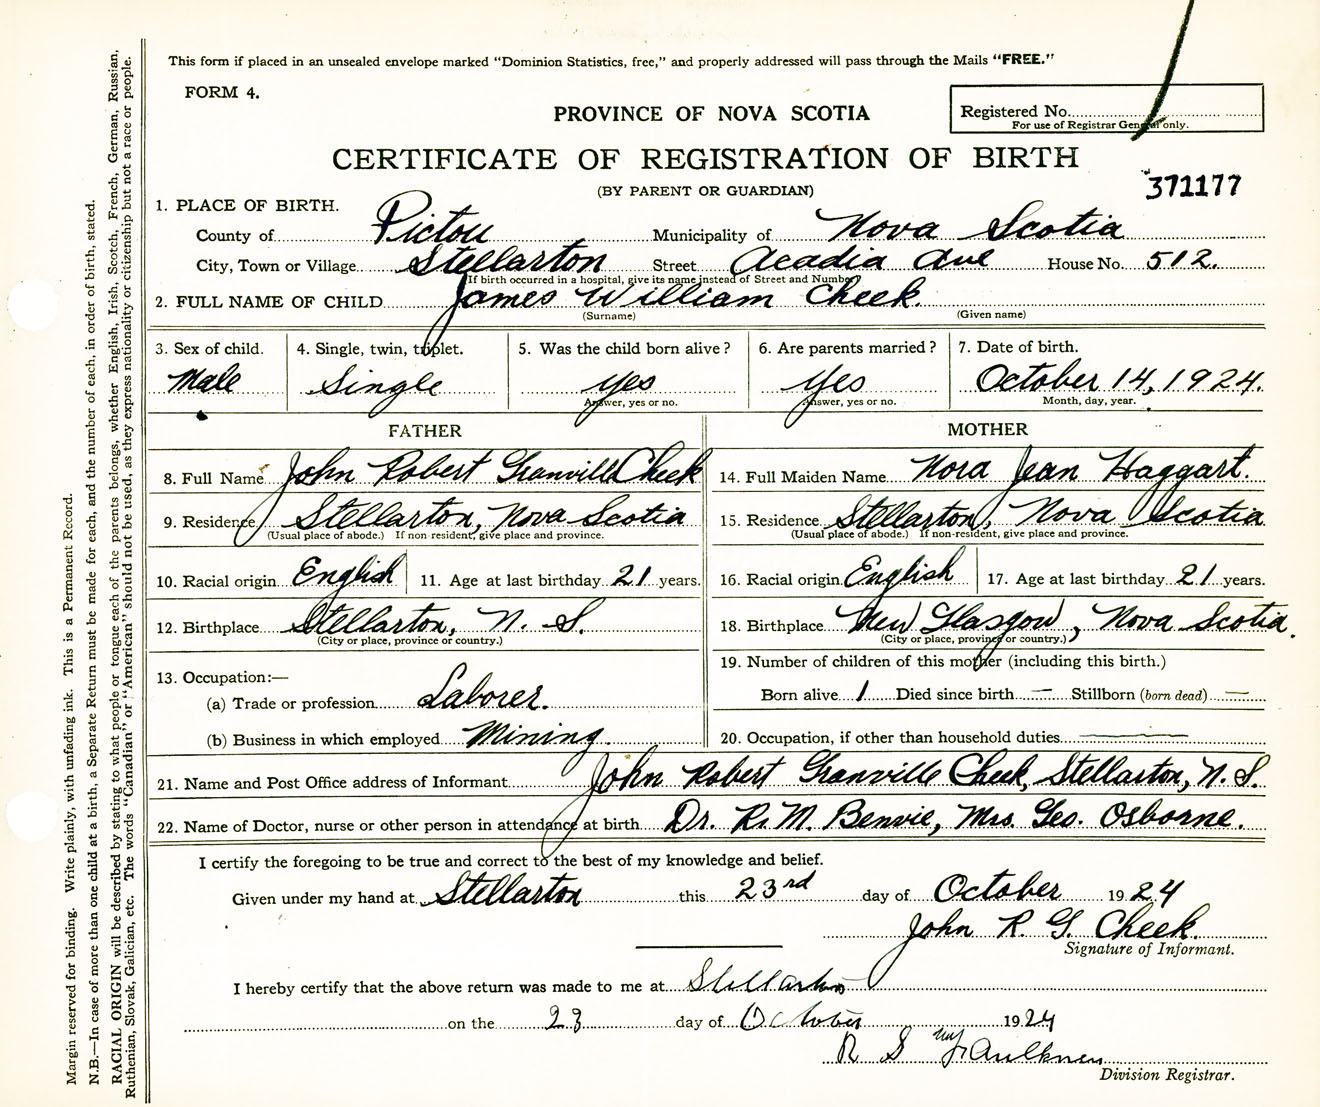 This form if placed in an unsealed envelope marked "Dominion Statistics, free," and properly addressed will pass through the Mails "FREE."
FORM 4.
PROVINCE OF NOVA SCOTIA
Registered No.
For use of Registrar General only.
CERTIFICATE OF REGISTRATION OF BIRTH
(BY PARENT OR GUARDIAN)
371177
1. PLACE OF BIRTH.
County of Pictou Municipality of Nova Scotia
City, Town or Village Stellarton Street Acadia Ave House No. 512.
(If birth occurred in a hospital, give its name instead of Street and Number)
2. FULL NAME OF CHILD James William Cheek
(Surname) (Given name)
3. Sex of child. 4. Single, twin, triplet. 5. Was the child born alive? 6. Are parents married? 7. Date of birth.
Male Single yes yes October 14, 1924.
Answer, yes or no. Answer, yes or no. Month, day, year.
FATHER MOTHER
8. Full Name John Robert Granville Cheek 14. Full Maiden Name Nora Jean Haggart.
9. Residence Stellarton, Nova Scotia 15. Residence Stellarton, Nova Scotia
(Usual place of abode.) If non-resident, give place and province. (Usual place of abode.) If non-resident, give place and province.
10. Racial origin English 11. Age at last birthday 21 years. 16. Racial origin English 17. Age at last birthday 21 years.
12. Birthplace Stellarton, N. S. 18. Birthplace New Glasgow, Nova Scotia.
(City or place, province or country.) (City or place, province or country.)
13. Occupation:— 19. Number of children of this mother (including this birth.)
(a) Trade or profession Laborer. Born alive 1 Died since birth — Stillborn (born dead) —
(b) Business in which employed Mining. 20. Occupation, if other than household duties —
21. Name and Post Office address of Informant John Robert Granville Cheek, Stellarton, N. S.
22. Name of Doctor, nurse or other person in attendance at birth Dr. R. M. Benvie, Mrs. Geo. Osborne.
I certify the foregoing to be true and correct to the best of my knowledge and belief.
Given under my hand at Stellarton this 23rd day of October 1924
John R. G. Cheek.
Signature of Informant.
I hereby certify that the above return was made to me at Stellarton
on the 23 day of October 1924
R S Faulkner
Division Registrar.
Margin reserved for binding. Write plainly, with unfading ink. This is a Permanent Record.
N.B.—In case of more than one child at a birth, a Separate Return must be made for each, and the number of each, in order of birth, stated.
RACIAL ORIGIN will be described by stating to what people or tongue each of the parents belongs, whether English, Irish, Scotch, French, German, Russian,
Ruthenian, Slovak, Galician, etc. The words "Canadian" or "American" should not be used, as they express nationality or citizenship but not a race or people.